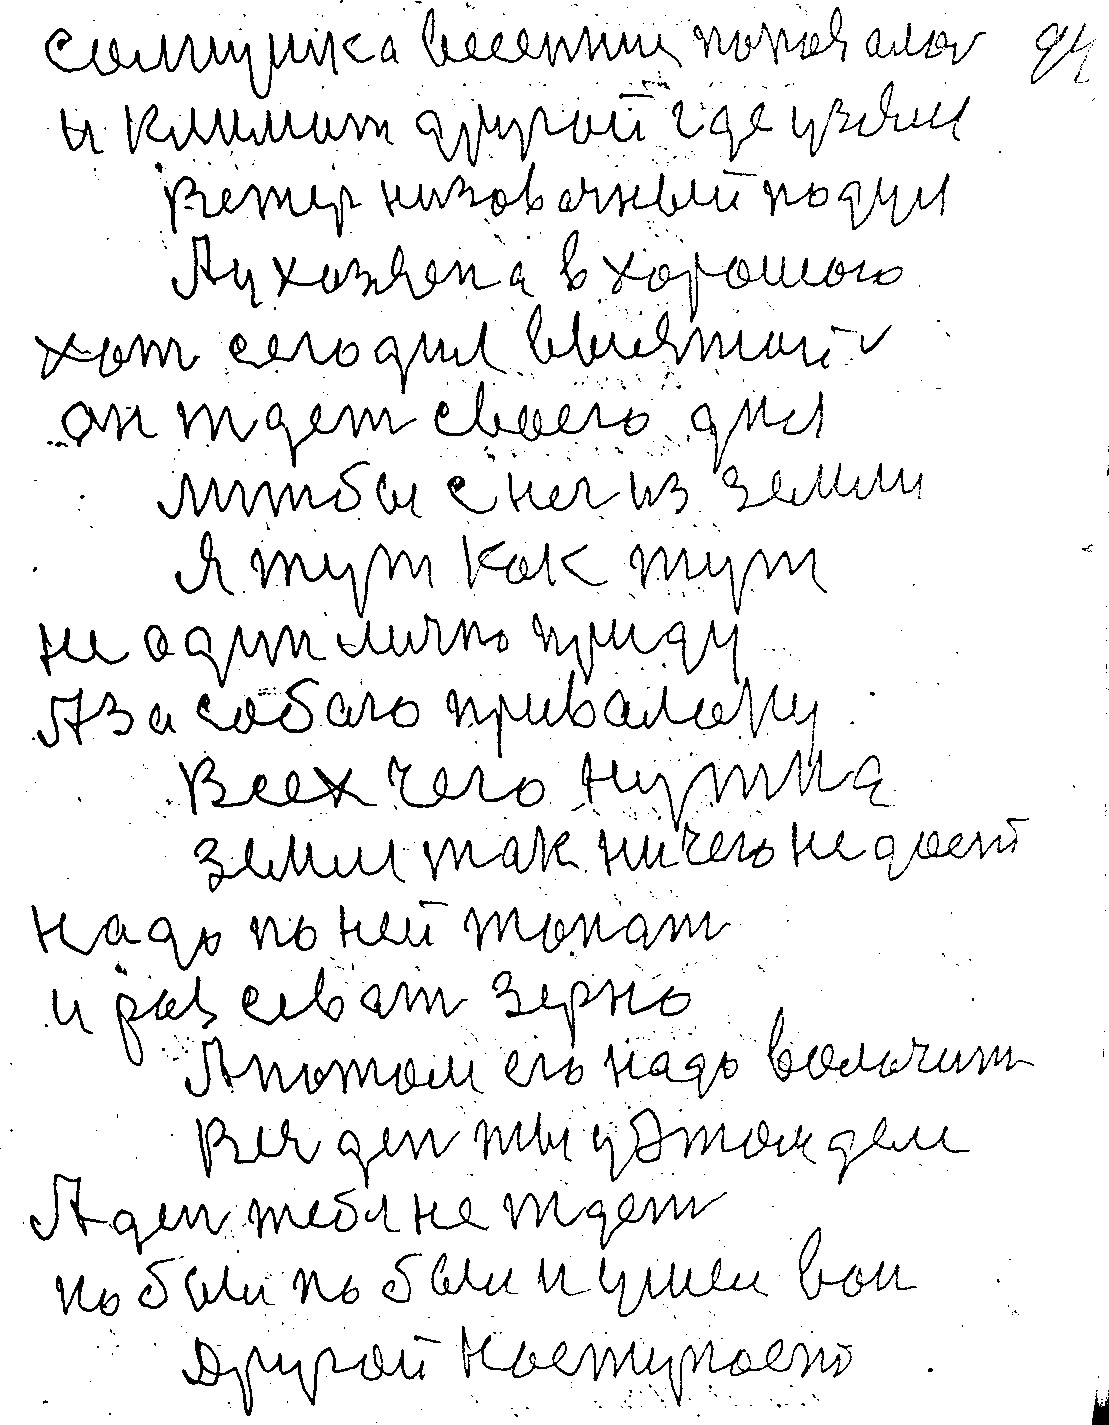 солнушка весенние попоявалов 94
и климат другой где узяли
Ветер низовячный подул
А у хозяена в хорошого
хот сегодня вынятой
он ждет своего дня
литбы снег из земли
Я тут как тут
не один лично приду
А за собаю приваложу
Всех чего нужна
земля так ничего не дает
надо по ней топат
и рассеват зерно
А потом его надо волочит
Вся ден ты у этом деле
А ден тебя не ждет
по были по были и ушел вон
другой наступает